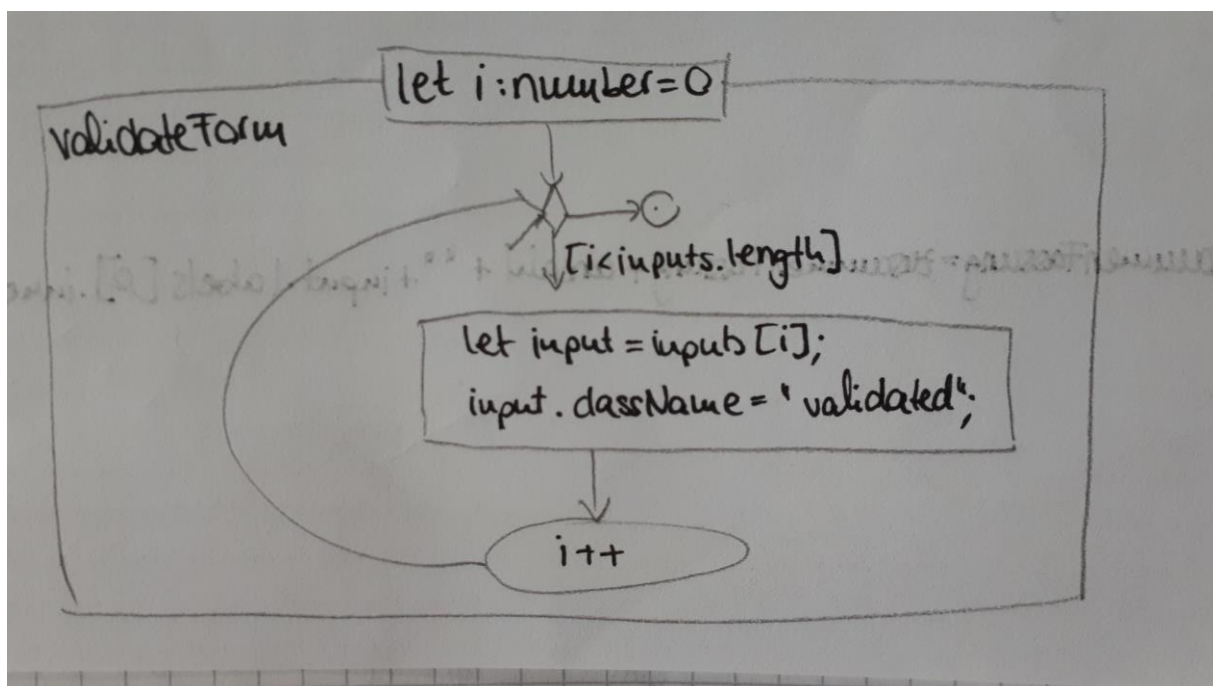 let i:number=0
validateForm
[i<inputs.length]
let input = inputs [i];
input.className = "validated";
i++